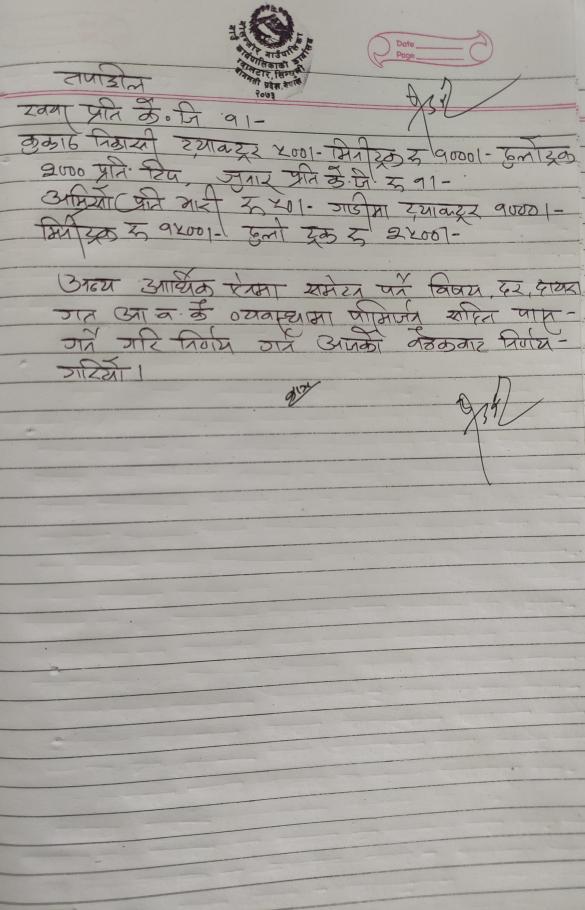 गोलन्जोर गाउँपालिका
गाउँ कार्यपालिकाको कार्यालय
बागमती प्रदेश, नेपाल
२०७३
Date
Page
तपशिल
खयर प्रति के.जि १।-
कुकाठ निकासी ट्याक्टर ५००।- मिनीट्रक रु १०००।- ठुलोट्रक
२००० प्रति टिप, जुनार प्रति के.जि. रु १।-
अम्रिसो प्रति भारी रु ५०।- गाडीमा ट्याक्टर १०००।-
मिनीट्रक रु १५००।- ठुलो ट्रक रु २५००।-
अन्य आर्थिक ऐनमा समेट्नु पर्ने विषय, दर, दायरा
गत आ.व. कै व्यवस्थामा परिमार्जन सहित पास -
गर्ने गरि निर्णय गर्ने आजको बैठकबाट निर्णय -
गरियो।